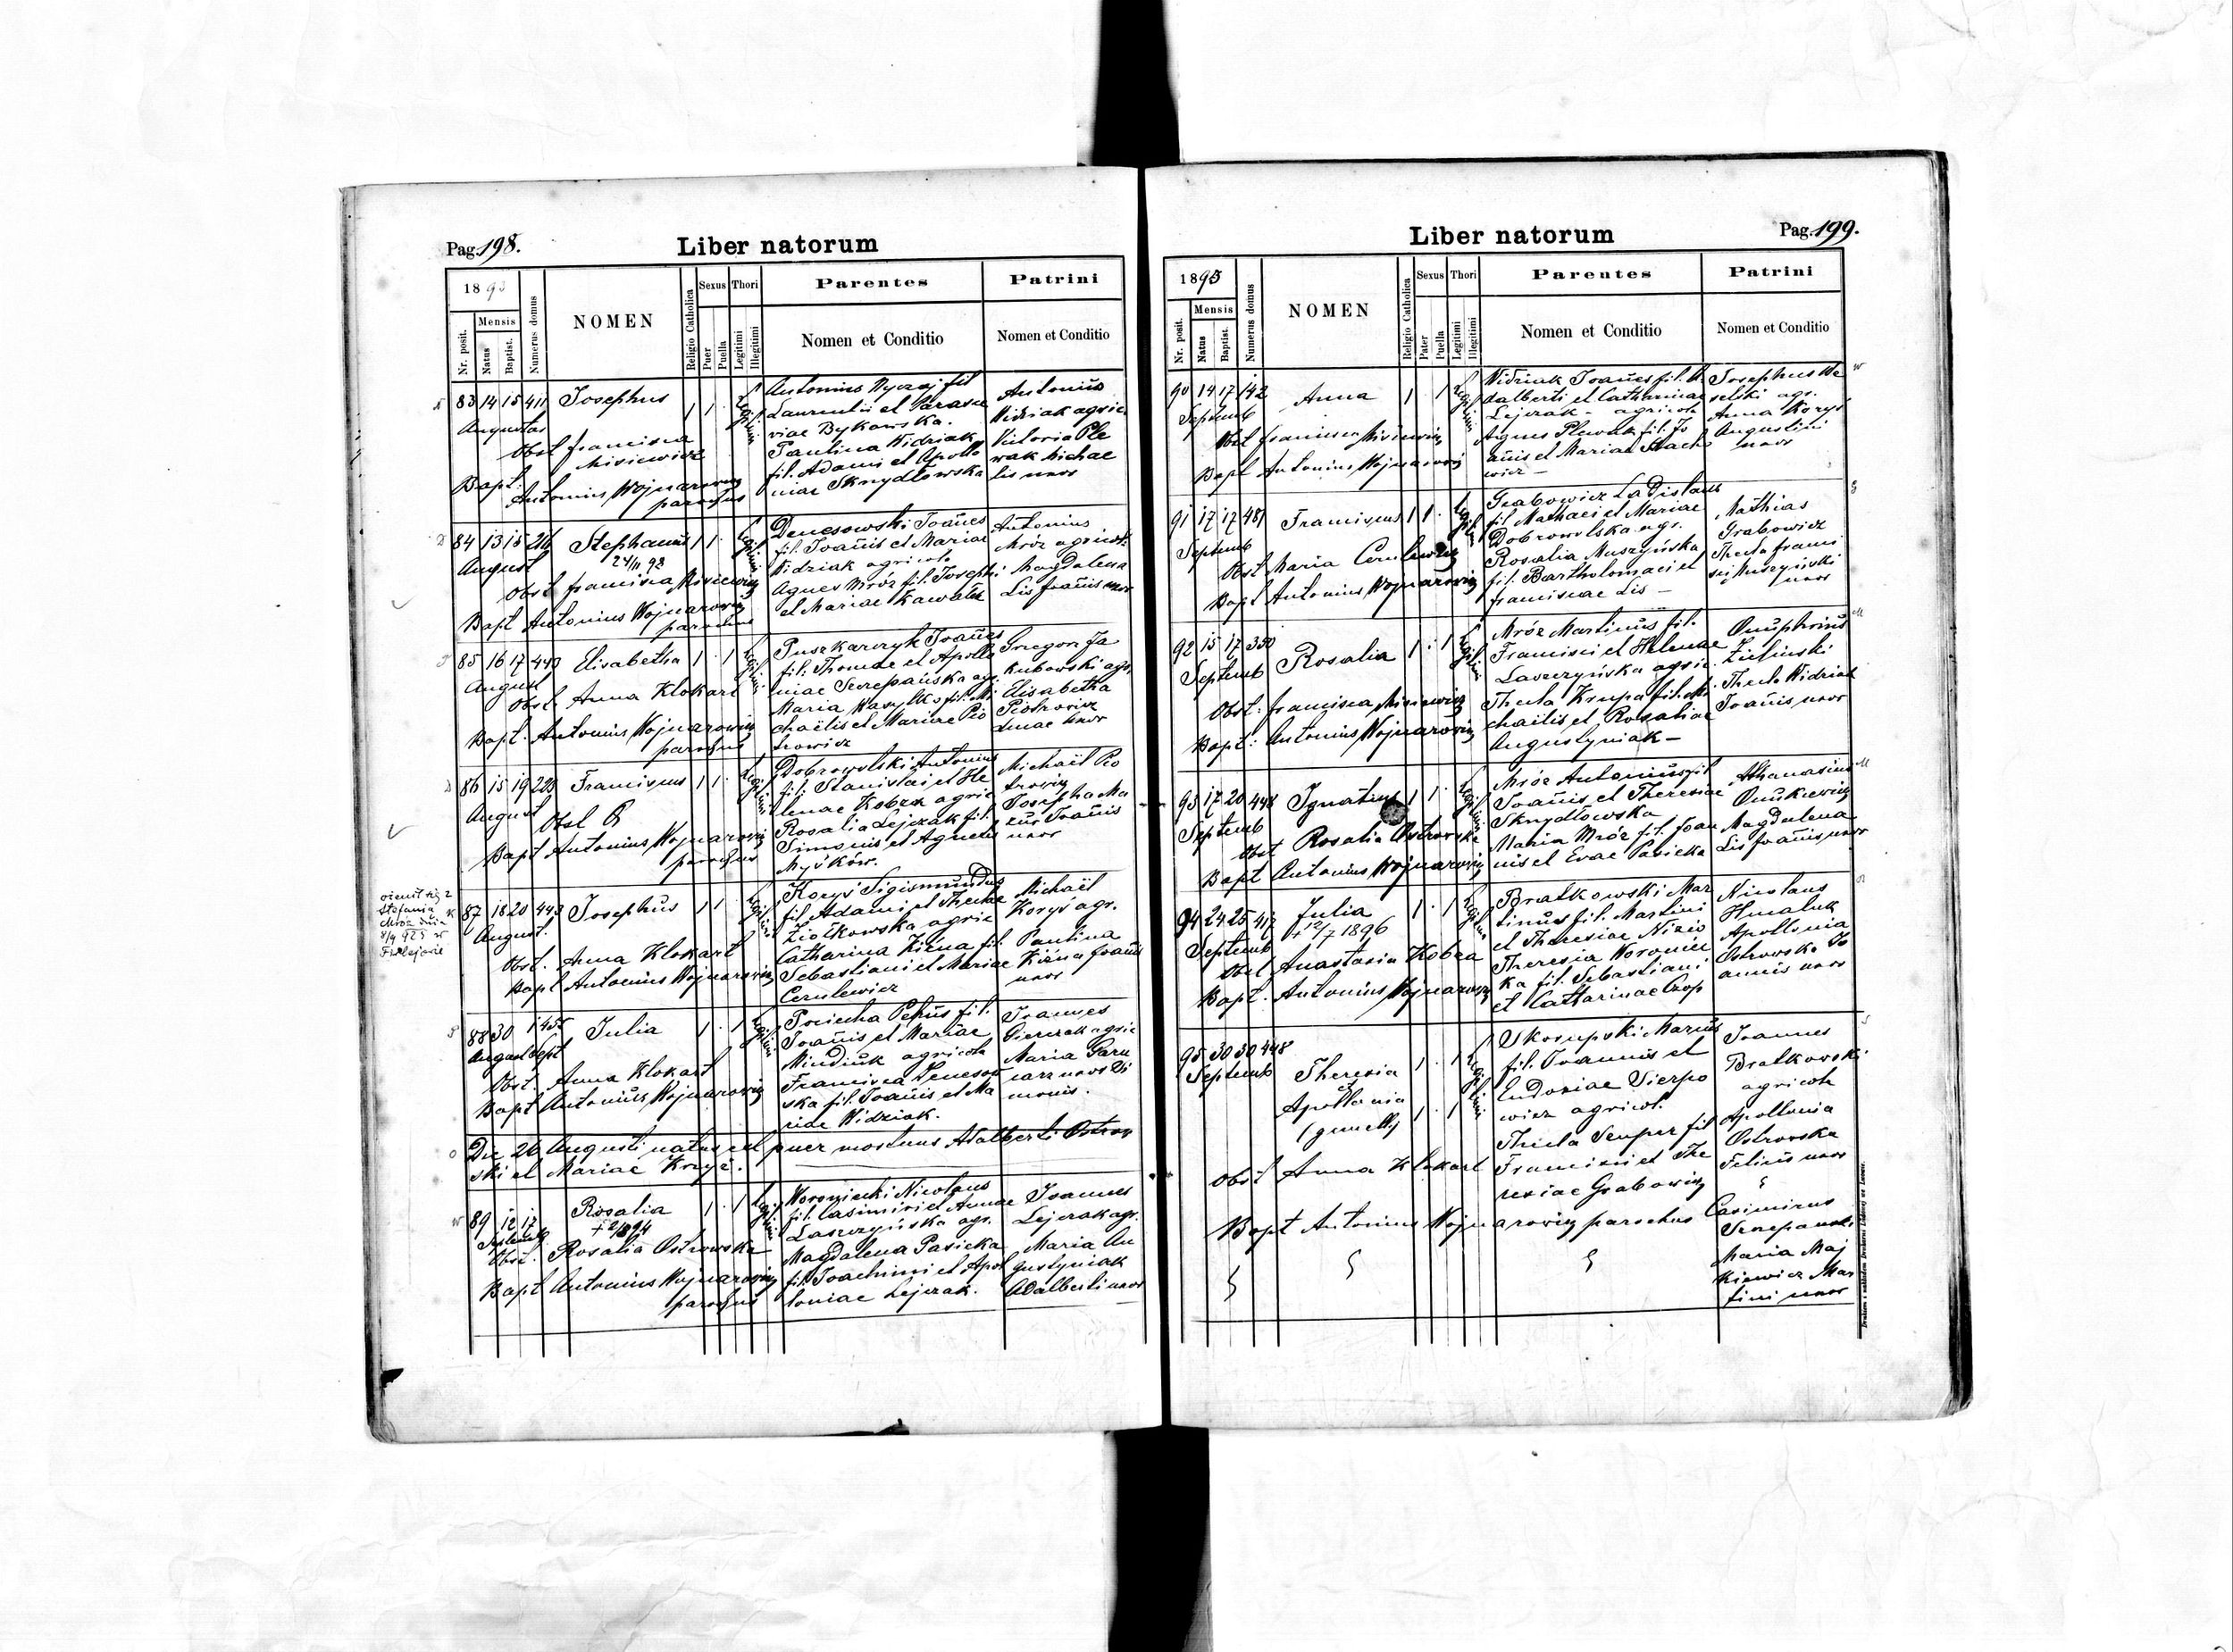 Pag. 198.
Liber natorum
1893
Nr. posit.
Mensis
Natus
Baptist.
Numerus domus
NOMEN
Religio Catholica
Sexus
Puer
Puella
Thori
Legitimi
Illegitimi
Parentes
Nomen et Conditio
Patrini
Nomen et Conditio
83 14 15 411 Josephus 1 1
Augustus
Obst francisca
Misiewicz
Bapt: Antonius Wojnarowicz
parochus
Antonius Nyczaj fil
Laurentii et Parasce
viae Bykowska.
Paulina Widziak
fil. Adami et Apollo
niae Sknydłowska
Antonius
Widziak agric
Victoria Ple
wak Michae
lis uxor
84 13 15 216 Stephanus 1 1
August
Obst francisca Misiewicz
Bapt Antonius Wojnarowicz
parochus
Denesowski Joannes
fil. Joannis et Mariae
Widziak agricola
Agnes Mróz fil. Josephi
et Mariae
Antonius
Mróz agricola
Magdalena
Lis Joannis uxor
85 16 17 443 Elisabetha 1 1
August
Obst. Anna Klokart
Bapt. Antonius Wojnarowicz
parochus
Puszkarczyk Joannes
fil. Thomae et Apollo
niae Szczepańska agr.
Maria Wasylko fil. Mi
chaëlis et Mariae Pio
trowicz
Gregor Ja
kubowski agr.
Elisabetha
Piotrowicz
uxor
86 15 19 223 Franciscus 1 1
August
Obst R
Bapt Antonius Wojnarowicz
parochus
Dobrowolski Antonius
fil. Stanislai et He
lenae Kobza agric
Rosalia Lejczak fil.
Simonis et Agnetis
Myśków.
Michaël Pio
trowicz
Josepha Ma
zur Joannis
uxor
87 18 20 443 Josephus 1 1
August.
Obst. Anna Klokart
Bapt Antonius Wojnarowicz
Koryś Sigismundus
fil. Adami et Theclae
Ziółkowska agric
Catharina Kizna fil.
Sebastiani et Mariae
Cerulewicz
Michaël
Koryś agr.
Paulina
Kizna Joannis
uxor
88 30 1 455 Julia 1 1
August Sept
Obst. Anna Klokart
Bapt Antonius Wojnarowicz
Pociecha Petrus fil.
Joannis et Mariae
Mindiuk agricola
Francisca Denesow
ska fil. Joannis et Ma
riae Widziak.
Joannes
agric
Maria
uxor Si
monis.
Die 26 Augusti natus est puer mortuus Adalberti Ostrow
ski et Mariae
89 12 17 Rosalia 1 1
Septemb
Obst. Rosalia Ostrowska
Bapt Antonius Wojnarowicz
parochus
Woroniecki Nicolaus
fil. Casimiri et Annae
Laszczyńska agr.
Magdalena Pasieka
fil. Joachimi et Apol
loniae Lejczak.
Joannes
Lejczak agr.
Maria Au
gustyniak
Adalberti uxor
Pag. 199.
Liber natorum
1893
Nr. posit.
Mensis
Natus
Baptist.
Numerus domus
NOMEN
Religio Catholica
Sexus
Pater
Puella
Thori
Legitimi
Illegitimi
Parentes
Nomen et Conditio
Patrini
Nomen et Conditio
90 14 17 142 Anna 1 1
Septemb
Obst francisca Misiewicz
Bapt Antonius Wojnarowicz
Widziak Joannes fil. A
dalberti et Catharinae
Lejczak - agricola
Agnes Plewak fil. Jo
annis et Mariae Stach
wicz -
Josephus We
selski agr.
Anna Koryś
Augustini
uxor
91 17 17 481 Franciscus 1 1
Septemb
Obst Maria Cerulewicz
Bapt Antonius Wojnarowicz
Grabowicz Ladislaus
fil Mathaei et Mariae
Dobrowolska agr.
Rosalia Muszyńska
fil. Bartholomaei et
franciscae Lis -
Mathias
Grabowicz
Thecla franci
sci Muszyński
uxor
92 15 17 350 Rosalia 1 1
Septemb
Obst. francisca Misiewicz
Bapt: Antonius Wojnarowicz
Mróz Martinus fil.
Francisci et Helenae
Laszczyńska agric.
Thecla Krupa fil. Mi
chaëlis et Rosaliae
Augustyniak -
Onuphrius
Zieliński
Thecla Widziak
Joannis uxor
93 17 20 448 Ignatius 1 1
Septemb
Obst Rosalia Ostrowska
Bapt Antonius Wojnarowicz
Mróz Antonius fil
Joannis et Theresiae
Sknydłowska
Maria Mróz fil. Joan
nis et Evae Pasieka
Athanasius
Onuśkiewicz
Magdalena
Lis Joannis uxor
94 24 25 417 Julia 1 1
† 12/7 1896
Septemb
Obst Anastasia Kobza
Bapt. Antonius Wojnarowicz
Bratkowski Mar
tinus fil. Martini
et Theresiae
Theresia Woroniec
ka fil. Sebastiani
et Catharinae Czop
Nicolaus
Hnatiuk
Apollonia
Ostrowska Jo
annis uxor
95 30 30 448
Septemb
Theresia 1 1
et
Apollonia 1 1
(gemelli)
Obst Anna Klokart
Bapt Antonius Wojnarowicz parochus
Skorupski Marcus
fil. Joannis et
Eudoxiae Sierpo
wicz agricol.
Thecla Semper fil
Francisci et The
resiae Grabowicz
Joannes
Bratkowski
agricola
Apollonia
Ostrowska
Felicis uxor
Casimirus
Szczepański
Maria Maj
kiewicz Mar
tini uxor